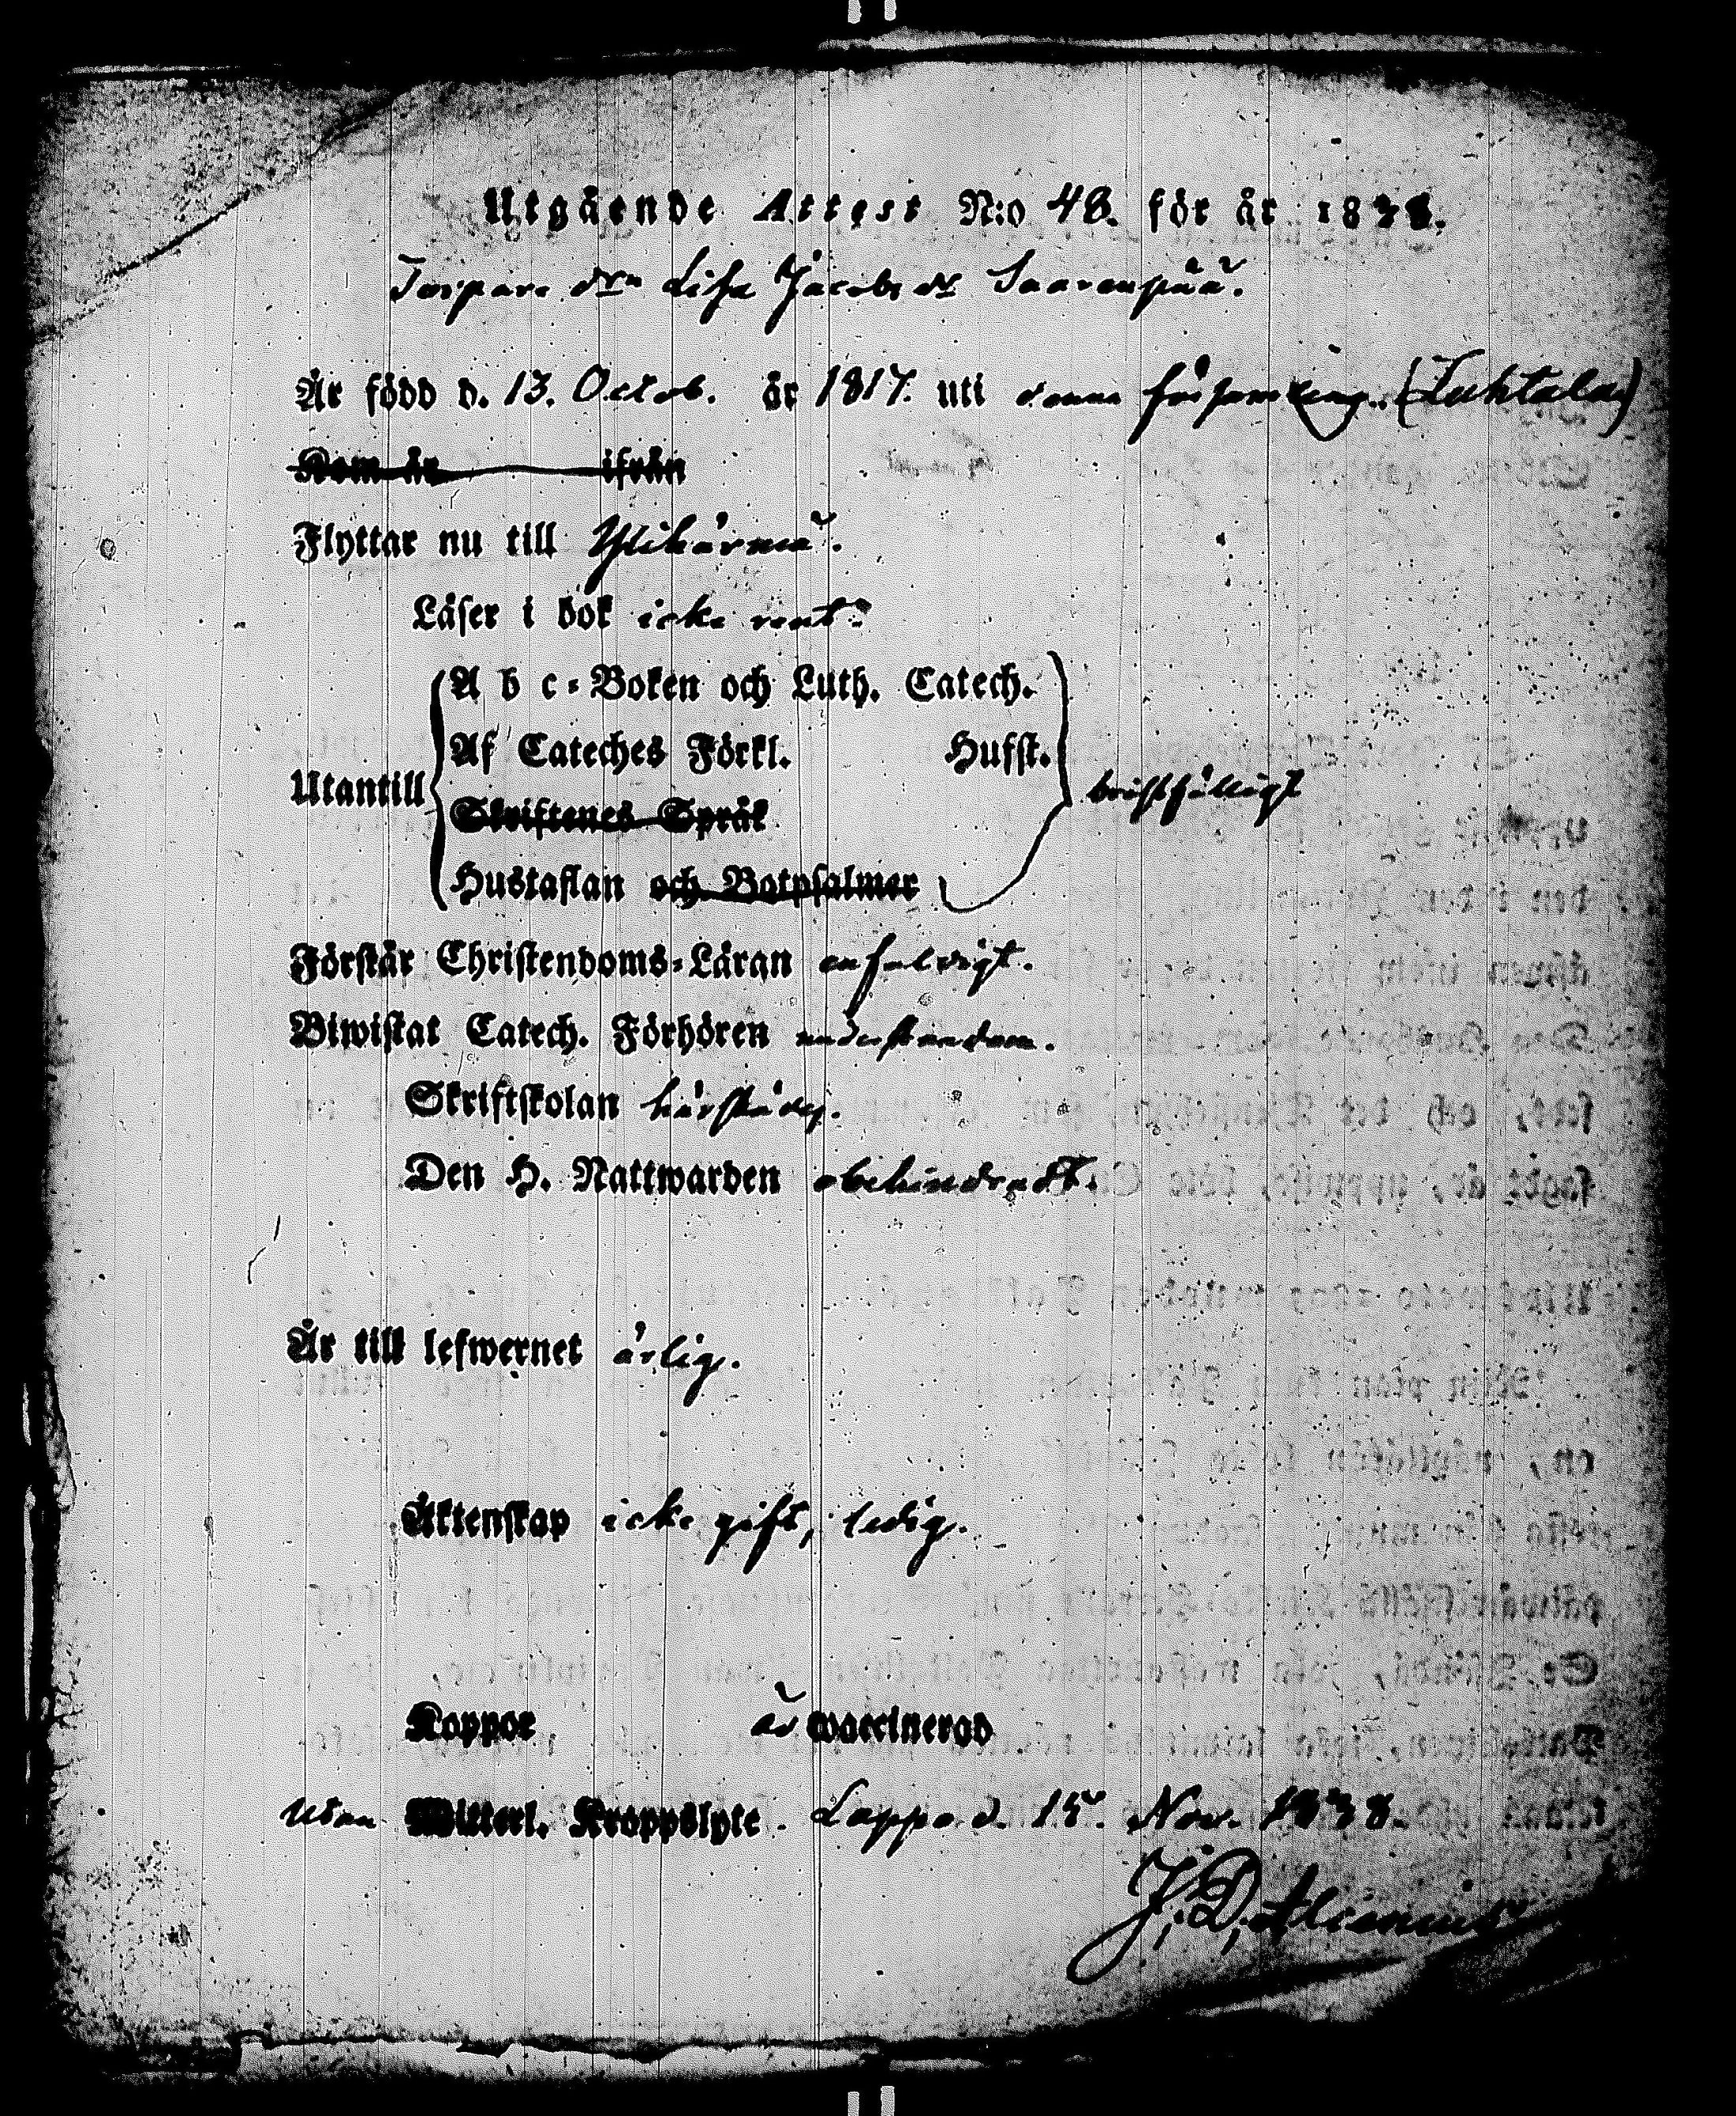 Utgående Attest N:o 48. för år 1838.
Inspare drn Lisa Jacobs dr Saarenpää.
Är född d. 13. Octob. år 1817. uti denna församling. (Luhtala)
Kom år ifrån
Flyttar nu till Ylihärmä.
Läser i bok icke rent.
A b c-Boken och Luth. Catech.
Af Cateches Förkl. Hufst.
Utantill bristfälligt
Skriftenes Språk
Hustaflan och Botpsalmer
Förstår Christendoms-Läran enfaldigt.
Biwistat Catech. Förhören understundom.
Skriftskolan härstädes.
Den H. Nattwarden obehindradt.
Är till lefwernet ärlig.
Äktenskap icke gift, ledig.
Koppor är waccinerad
Utan Witterl. Kroppslyte. Lappo d. 15. Nov. 1838.
J. D. Alcenius